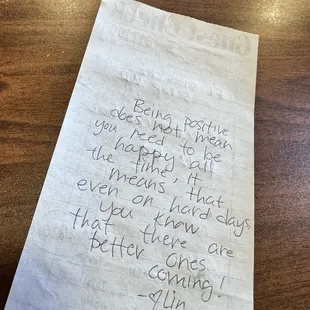 Guest Check
Being positive
does not mean
you need to be
happy all
the time, it
means, that
even on hard days
you know
that there are
better ones
coming!
-♡Lin